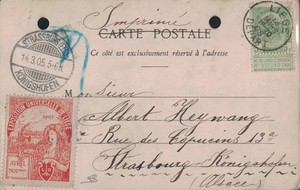 Imprimé
CARTE POSTALE
Ce côté est exclusivement réservé à l'adresse
STRASSBURG
14.3.05.5-6N.
KÖNIGSHOFEN
Monsieur
Albert Heywang
Rue des Capucins 13a
Strasbourg-Königshofen
(Alsace)
EXPOSITION UNIVERSELLE
1905
AVRIL